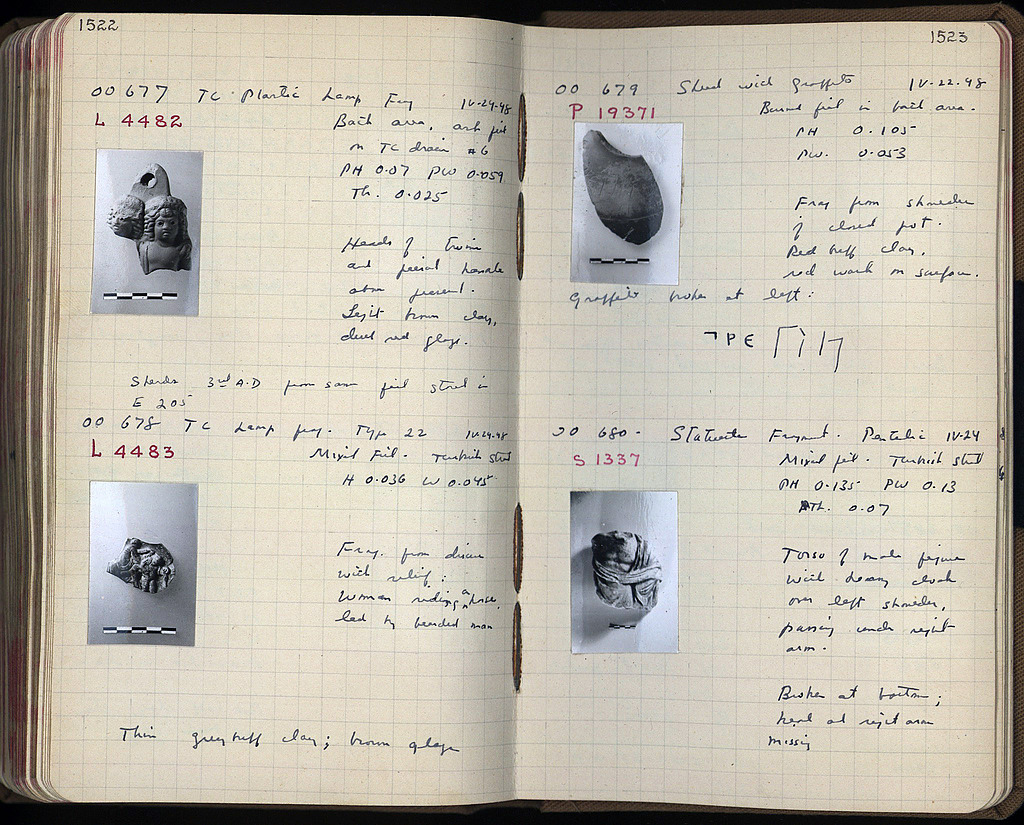 1522
OO 677 TC Plastic Lamp Frag IV-24-48
L 4482
Bath area, ash fill
on TC drain #6
PH 0.07 PW 0.059
Th. 0.025
Heads of twins
and partial handle
also present.
Light brown clay,
dull red glaze.
Sherds 3rd A.D from same fill stored in
E 205
OO 678 TC Lamp frag. Type 22 IV-24-48
L 4483
Mixed Fill. Turkish strat
H 0.036 W 0.045
Frag. from discus
with relief:
Woman riding a horse,
led by bearded man
Thin grey buff clay; brown glaze
1523
OO 679 Sherd with Graffito IV-22-48
P 19371
Burned fill in bath area.
PH 0.105
PW. 0.053
Frag from shoulder
of closed pot.
Red buff clay,
red wash on surface.
Graffito broken at left:
ΡΕ
OO 680 - Statuette Fragment. Pentelic IV-24
S 1337
Mixed fil. Turkish strat
PH 0.135 PW 0.13
Th. 0.07
Torso of male figure
with heavy cloak
over left shoulder,
passing under right
arm.
Broken at bottom;
head and right arm
missing